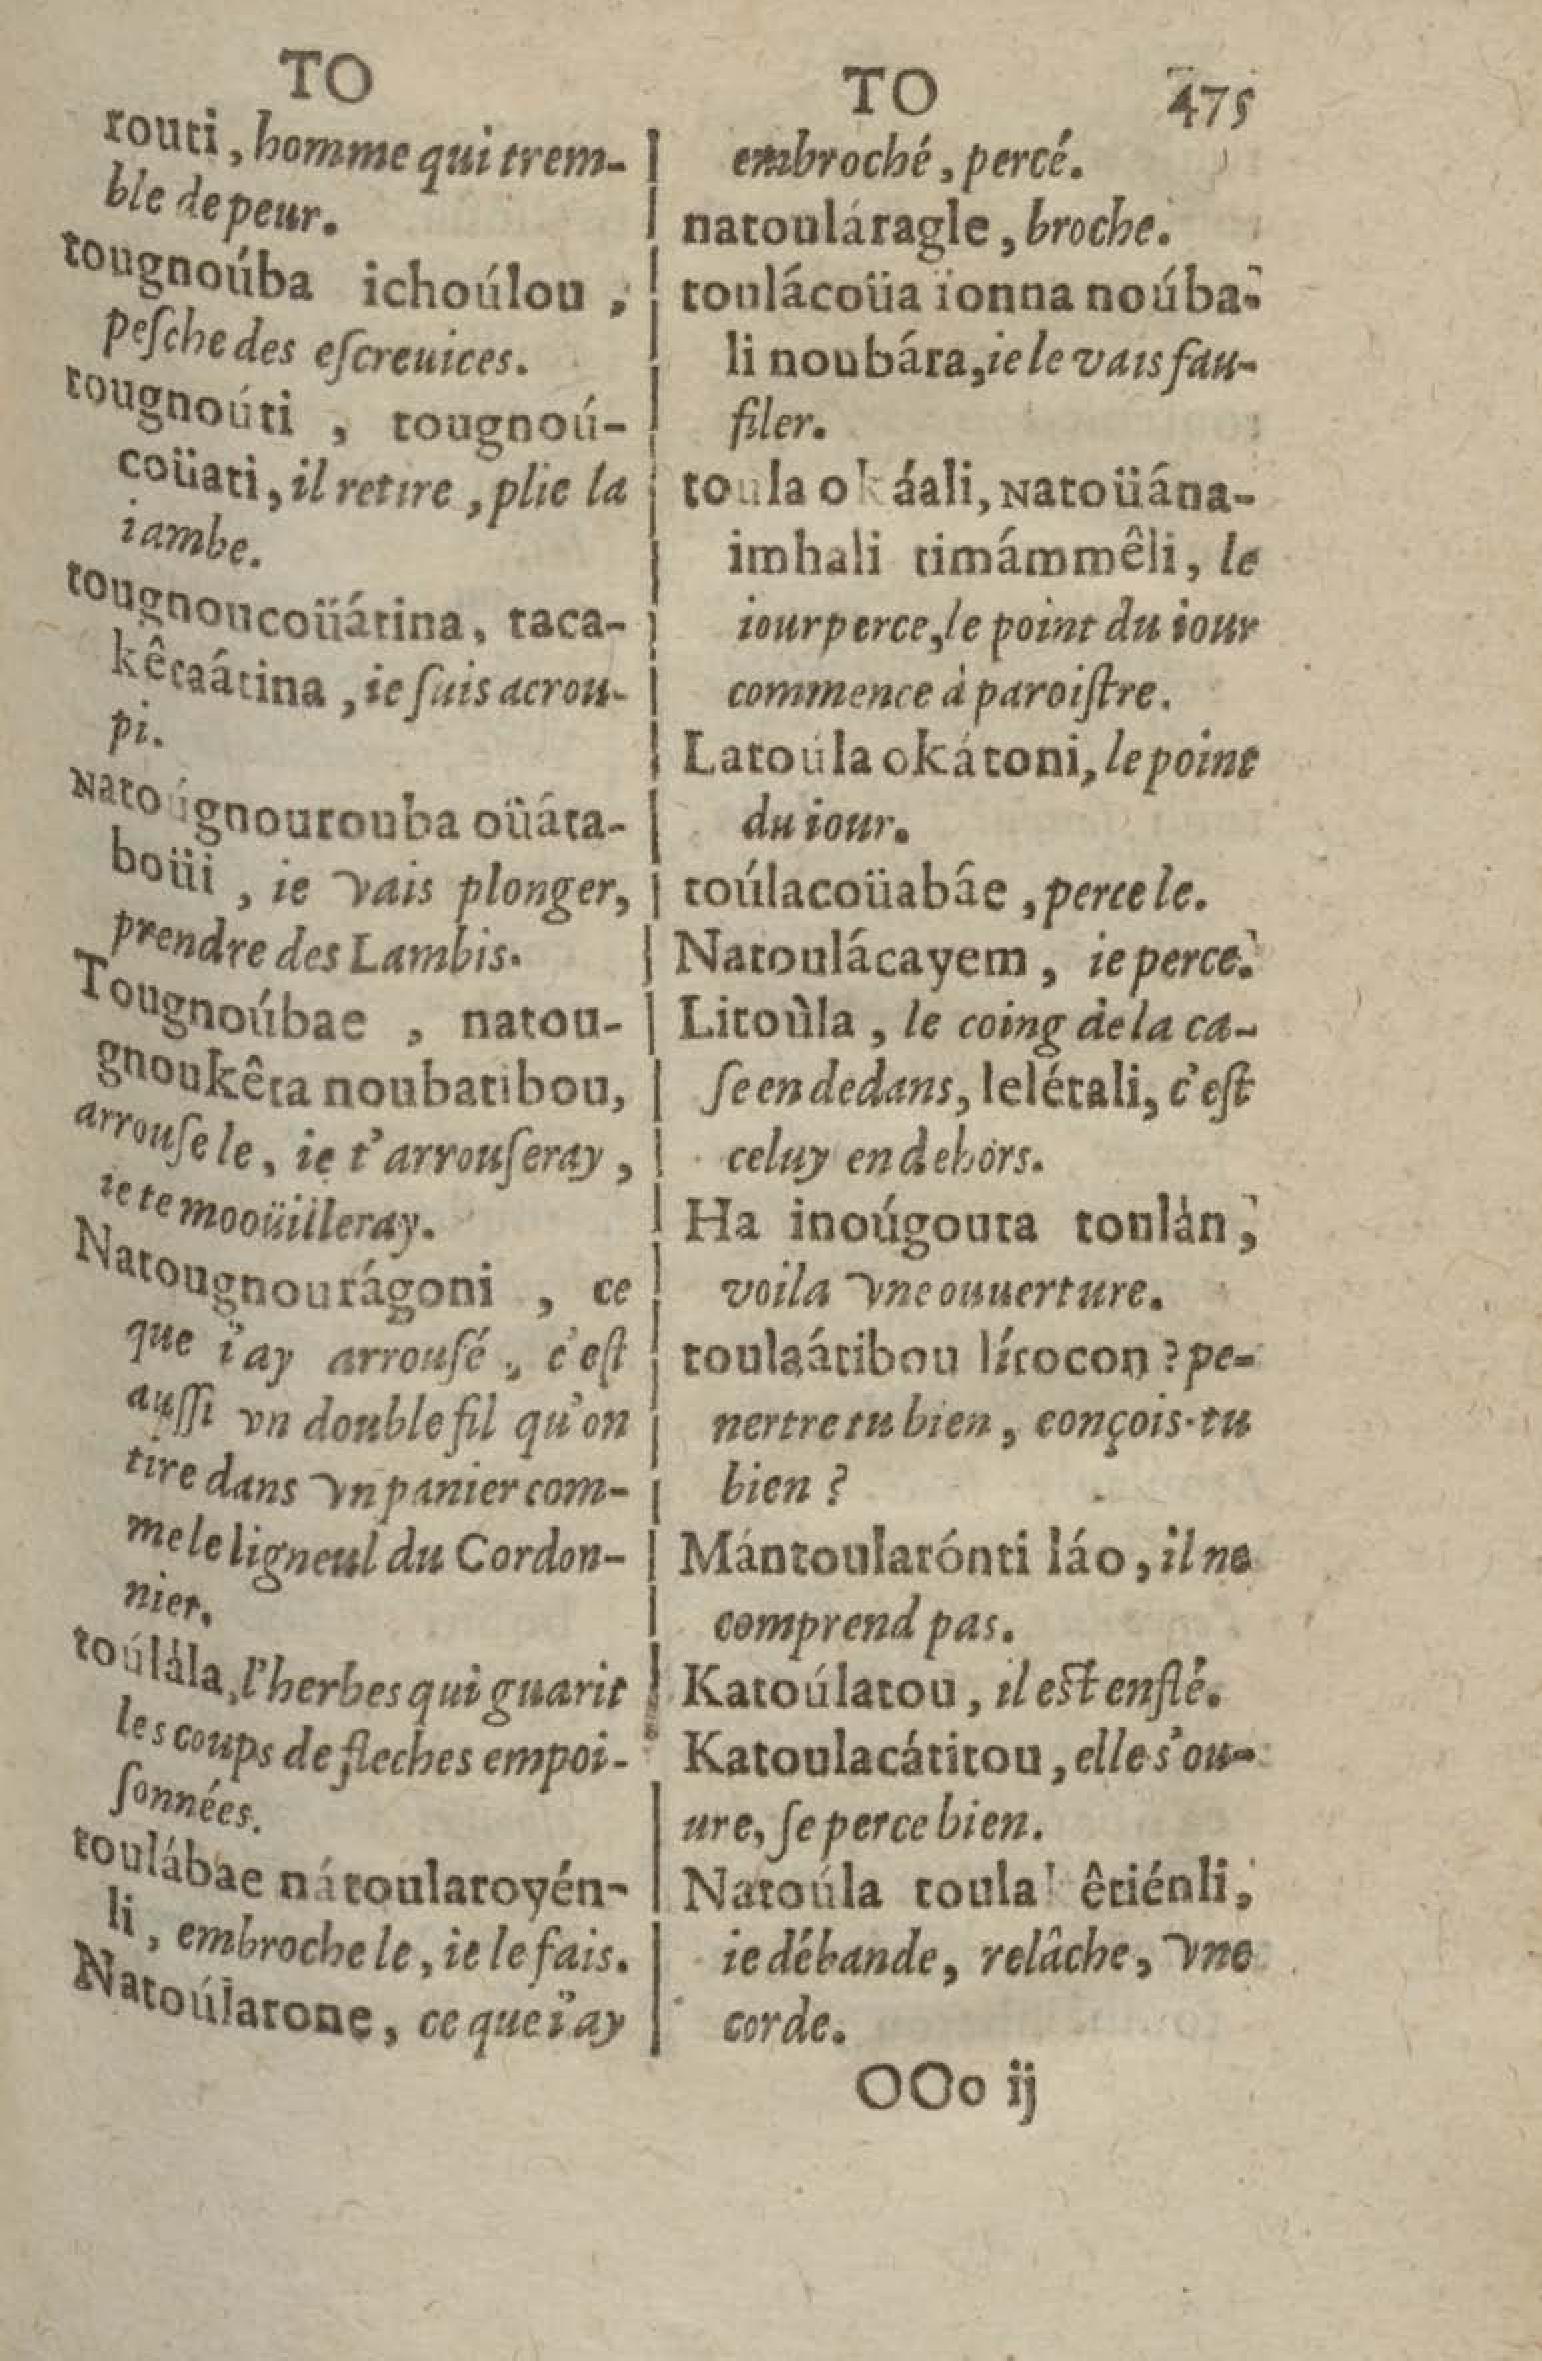 TO
routi, homme qui trem-
ble de peur.
tougnoúba ichoúlou,
peſche des eſcreuices.
tougnoúti, tougnoú-
coüati, il retire, plie la
iambe.
tougnoucoüátina, taca-
kêtaátina, ie ſuis acrou-
pi.
Natoúgnourouba oüáta-
boüi, ie vais plonger,
prendre des Lambis.
Tougnoúbae, natou-
gnoukêta noubatibou,
arrouſe le, ie t'arrouſeray,
ie te mooüilleray.
Natougnourágoni, ce
que i'ay arrouſé, c'eſt
auſſi vn double fil qu'on
tire dans vn panier com-
me le ligneul du Cordon-
nier.
toúlála, l'herbes qui guarit
les coups de fleches empoi-
ſonnées.
toulábae nátoularoyén-
li, embroche le, ie le fais.
Natoúlatone, ce que i'ay
TO 475
embroché, percé.
natouláragle, broche.
toulácoüa ïonna noúba-
li noubára, ie le vais fau-
filer.
toula okáali, Natoüána-
imhali timámmêli, le
iour perce, le point du iour
commence à paroiſtre.
Latoúla okátoni, le point
du iour.
toúlacoüabâe, perce le.
Natoulácayem, ie perce.
Litoùla, le coing de la ca-
ſe en dedans, lelétali, c'eſt
celuy en dehors.
Ha inoúgouta toulàn,
voila vne ouuerture.
toulaátibou lítocon? pe-
nertre tu bien, conçois-tu
bien?
Mántoularónti láo, il ne
comprend pas.
Katoúlatou, il eſt enflé.
Katoulacátitou, elle s'ou-
ure, ſe perce bien.
Natoúla toula! êtiénli,
ie débande, relâche, vne
corde.
OOo ij